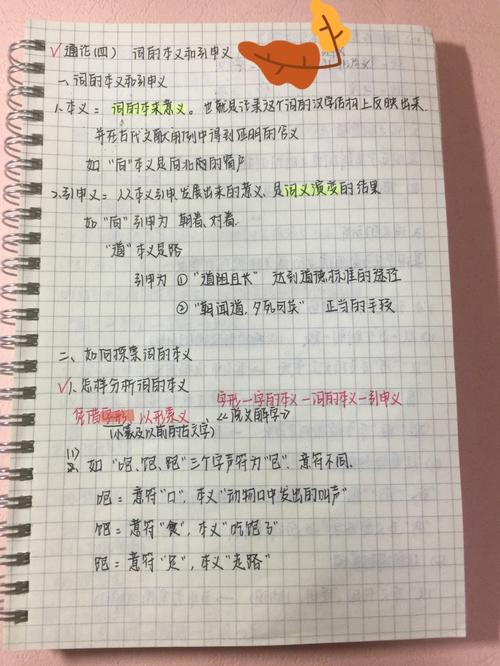 √通论(四) 词的本义和引申义
一、词的本义和引申义
1.本义：词的本来意义。也就是记录这个词的汉字结构上反映出来
并在古代文献用例中得到证明的含义
如"向"本义是向北面的窗户
2.引申义：从本义引申发展出来的意义，是词义演变的结果
如"向"引申为 朝着、对着.
"道"本义是路
引申为 ①"道阻且长" 达到道德标准的途径
②"朝闻道，夕死可矣" 正当的手段
二、如何探索词的本义
√1.怎样分析词的本义
字形—字的本义—词的本义—引申义
凭借字形 以形索义、《说文解字》
(小篆及以前的古文字)
(1)
如"咆、饱、跑"三个字声符为"包"，意符不同.
咆：意符"口"，本义"动物口中发出的叫声"
饱：意符"食"，本义"吃饱了"
跑：意符"足"，本义"走路"